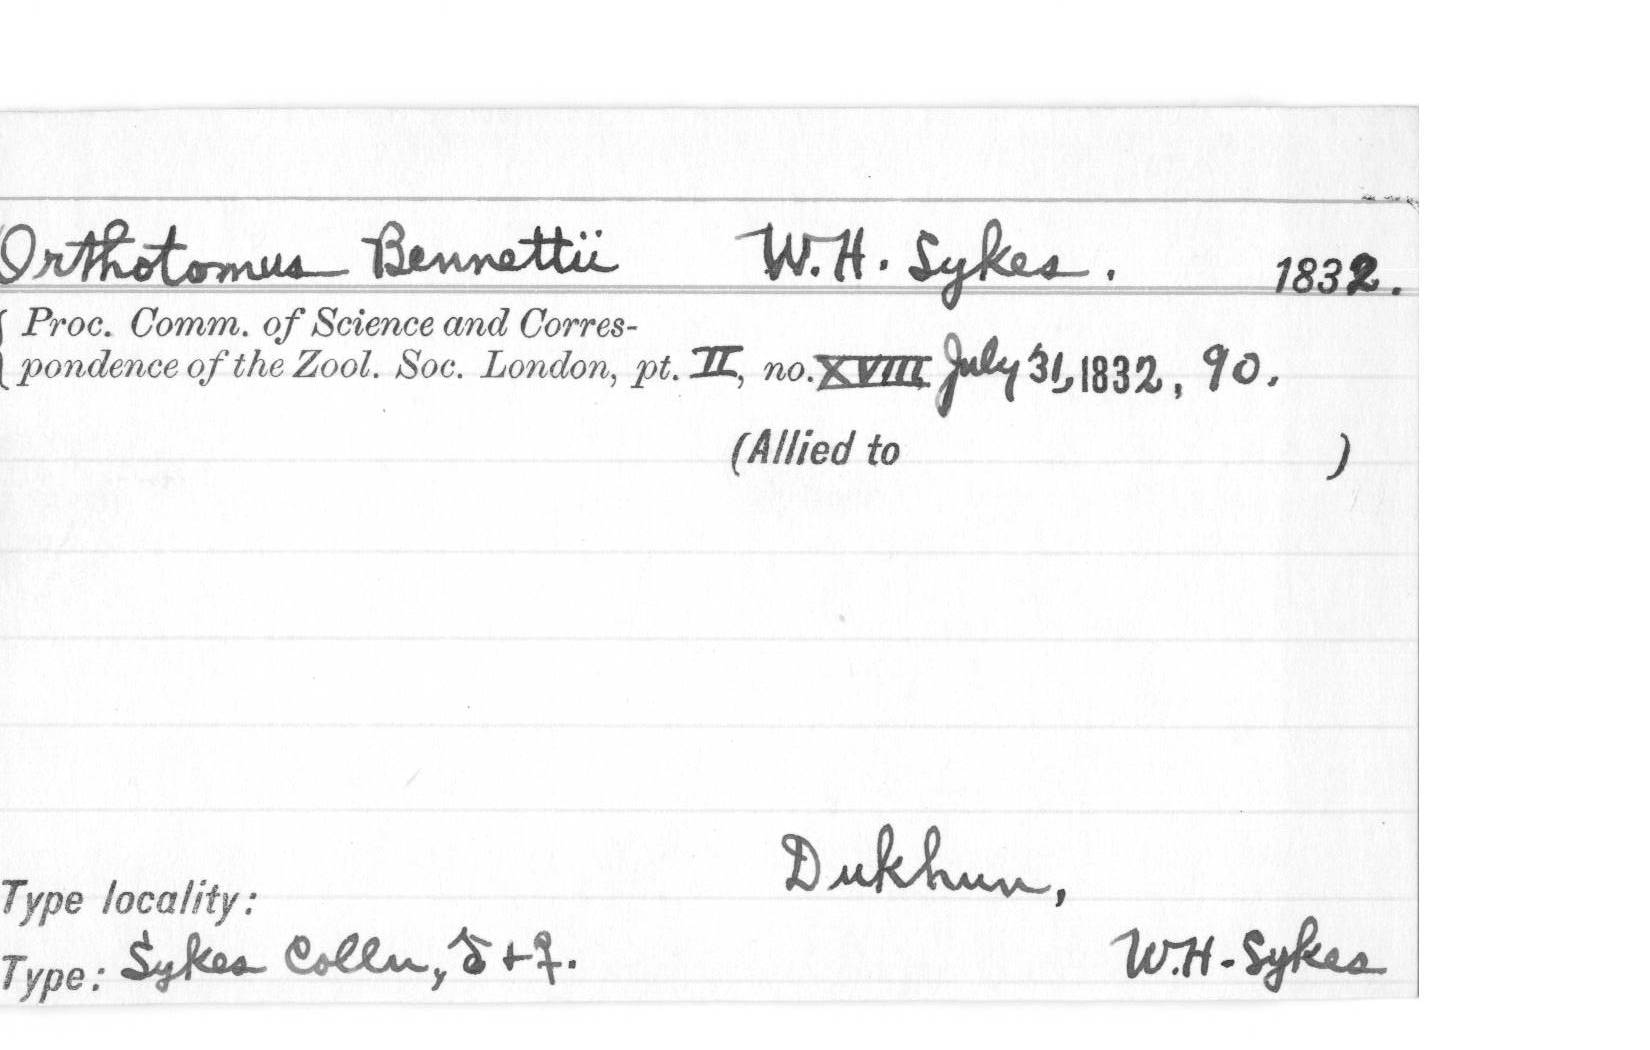 Orthotomus Bennettii W.H. Sykes. 1832.
{ Proc. Comm. of Science and Corres-
pondence of the Zool. Soc. London, pt. II, no. XVIII, July 31, 1832, 90.
(Allied to )
Dukhun,
Type locality:
Type: Sykes Colln, ♂ + ♀. W.H. Sykes